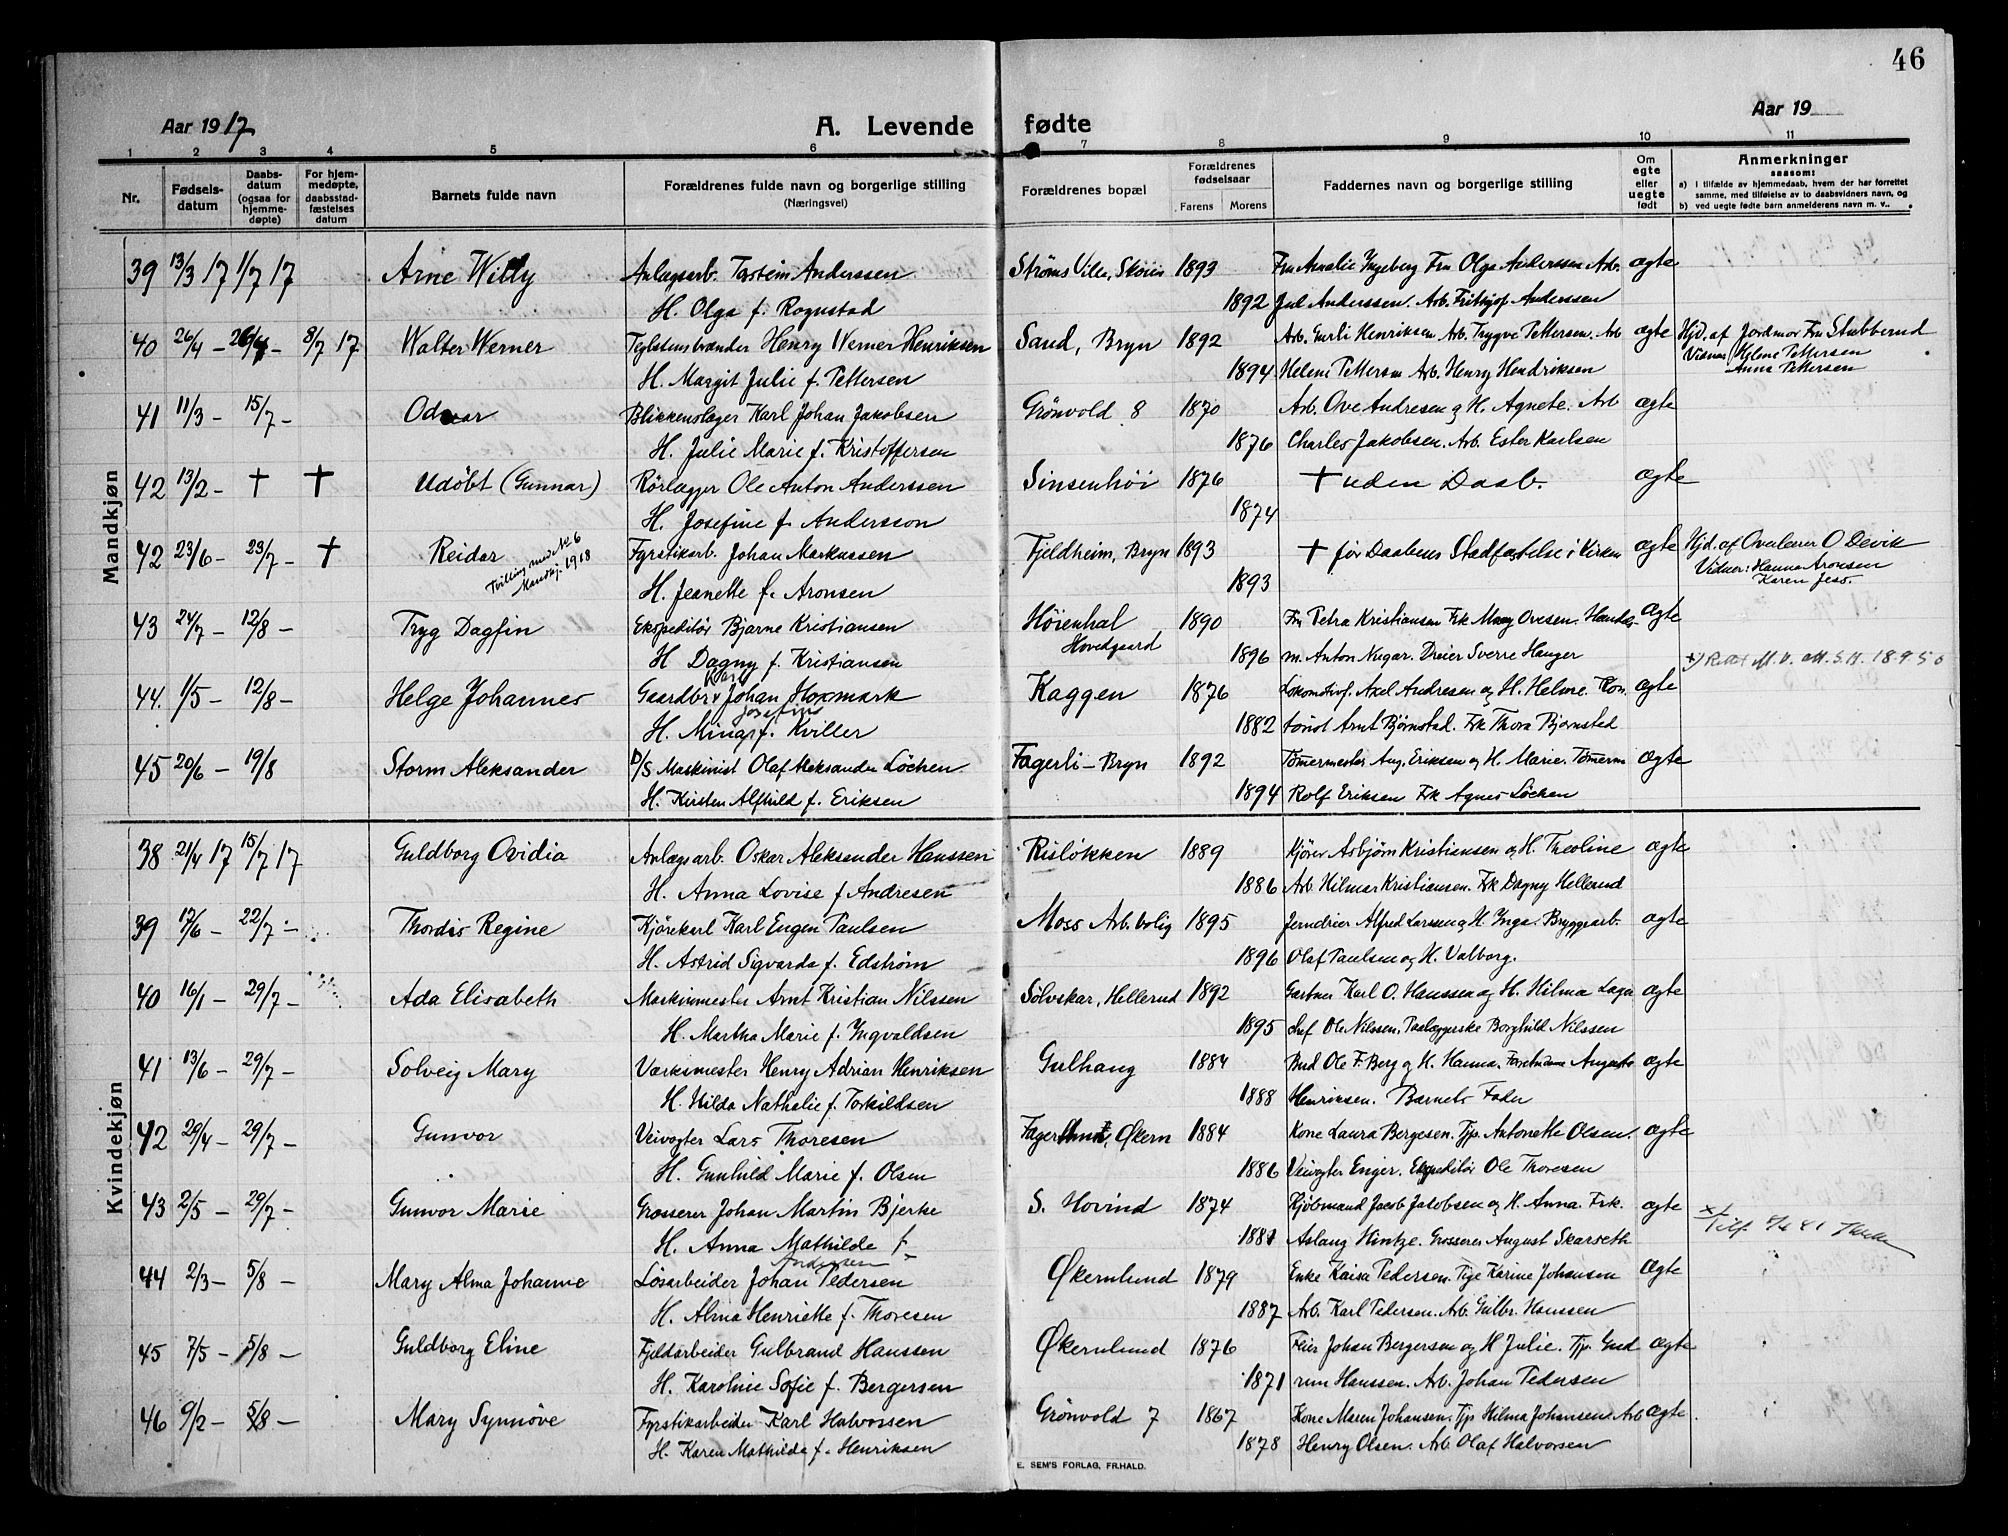 46
Aar 1917
A. Levende fødte
Aar 19
1 2 3 4 5 6 7 8 9 10 11
Nr.
Fødsels-
datum
Daabs-
datum
(ogsaa for
hjemme-
døpte)
For hjem-
medøpte,
daabsstad-
fæstelses
datum
Barnets fulde navn
Forældrenes fulde navn og borgerlige stilling
(Næringsvei)
Forældrenes bopæl
Forældrenes
fødselsaar
Farens Morens
Faddernes navn og borgerlige stilling
Om
egte
eller
uegte
født
Anmerkninger
saasom:
a) i tilfælde av hjemmedaab, hvem der har forrettet
samme, med tilføielse av to daabsvidners navn, og
b) ved uegte fødte barn anmelderens navn m. v..
Mandkjøn
39 13/3 17 1/7 17 Arne Willy Anlægsarb. Torstein Anderssen Strøms Ville, Skøien 1893 Fru Amalie Ingeberg Fru Olga Anderssen Arb. ægte
H. Olga f. Rognstad 1892 Jul Anderssen. Arb. Frithjof Anderssen
40 26/4 – 26/4 – 8/7 17 Walter Werner Teglstensbrænder Henry Werner Henriksen Sand, Bryn 1892 Arb. Henriksen Arb. Trygve Pettersen. Arb ægte Hjd. af Jordmor Fru Stubberud
H. Margit Julie f. Pettersen 1894 Helene Pettersen Arb. Henry Hendriksen Vidner Helene Pettersen
Anna Pettersen
41 11/3 – 15/7 – Odvar Blikkenslager Karl Johan Jakobsen Grönvold 8 1870 Arb. Ove Andresen og H. Agnete. Arb ægte
H. Julie Marie f. Kristoffersen 1876 Charles Jakobsen. Arb. Ester Karlsen
42 13/2 – † † Udøbt (Gunnar) Rørlægger Ole Anton Anderssen Sinsenhöi 1876 † uden Daab. ægte
H. Josefine f. Andersson 1874
42 23/6 – 23/7 – † Reidar Fyrstikarb. Johan Markussen Fjeldheim, Bryn 1893 † før Daabens Stadfæstelse i Kirken ægte Hjd. af Overlærer O Devik
Tvilling med No 6
Mandkj. 1918
H. Jeanette f. Aronsen 1893 Vidner: Hanna Aronsen
Karen Jess.
43 24/7 – 12/8 – Tryg Dagfin Ekspeditör Bjarne Kristiansen Hörenhal 1890 Fru Petra Kristiansen Frk Mary Ovesen. Handels- ægte
Hovedgaard
H Dagny f. Kristiansen 1896 m. Anton Nygar. Dreier Sverre Hauger
44. 1/5 – 12/8 – Helge Johannes Gaardbr. Karl Johan Hoxmark Kaggen 1876 Lokomotivf. Axel Andresen og H. Helene. Kon- ægte
H. Minga Josefine f. Kviller 1882 torist Arnt Björnstad. Frk Thora Bjørnstad
45 20/6 – 19/8 Storm Aleksander D/S Maskinist Olaf Aleksander Löchen Fagerli – Bryn 1892 Tömermester Aug. Eriksen og H. Marie. Tömerm ægte
H. Kirsten Alfhild f. Eriksen 1894 Rolf Eriksen Frk Agnes Löchen
Kvindekjøn
38 21/4 17 15/7 17 Guldborg Ovidia Anlægsarb. Oskar Aleksander Hanssen Risløkken 1889 Kjörer Asbjörn Kristiansen og H. Theoline ægte
H. Anna Lovise f Andresen 1886 Arb. Hilmar Kristiansen. Frk Dagny Hellerud
39 17/6 – 22/7 – Thordis Regine Kjörekarl Karl Eugen Paulsen Moss Arb. bolig 1895 Jerndrier Alfred Larssen og H Inga. Bryggearb. ægte
H. Astrid Sigvarda f. Edström 1896 Olaf Paulsen og H. Valborg.
40 16/1 – 29/7 – Ada Elisabeth Maskinmester Arnt Kristian Nilssen Sölvskar, Hellerud 1892 Gartner Karl O. Hanssen og H. Hilma Lager ægte
H. Martha Marie f. Ingvaldsen 1895 chef Ole Nilssen. Paalæggerske Borghild Nilssen
41 13/6 – 29/7 – Solveig Mary Værkmester Henry Adrian Henriksen Gulhaug 1884 Bud Ole F. Berg og H. Hanna. Augusta ægte
H. Hilda Nathalie f. Torkildsen 1888 Henriksen. Barnets Fader
42 29/4 – 29/7 – Gunvor Veivogter Lars Thoresen Økern 1884 Kone Laura Bergesen. Tjp. Antonette Olsen. ægte
H. Gunhild Marie f. Olsen 1886 Veivogter Enger. Ekspeditör Ole Thoresen
43 2/5 – 29/7 – Gunvor Marie Grosserer Johan Martin Bjerke S. Hovind 1874 Kjöbmand Jacob Jacobsen og H. Anna. Frk. ægte
H. Anna Mathilde f. Andersen 1881 Aslaug Hintze. Grosserer August Skarseth
44 2/3 – 5/8 – Mary Alma Johanne Lösarbeider Johan Pedersen Økernlund 1879 Enke Kaisa Pedersen. Pige Karine Johansen ægte
H. Alma Henriette f. Thoresen 1887 Arb. Karl Pedersen. Arb. Gulbr. Hanssen
45 7/5 – 5/8 – Guldborg Eline Fjeldarbeider Gulbrand Hanssen Økernlund 1876 Feier Johan Bergersen og H Julie. Tjp. Gud ægte
H. Karoline Sofie f. Bergersen 1871 run Hanssen. Arb. Johan Pedersen
46 9/2 – 5/8 – Mary Synnöve Fyrstikarbeider Karl Halvorsen Grönvold 7 1867 Kone Maren Johansen. Tjp Hilma Johansen. Arb ægte.
H. Karen Mathilde f. Henriksen 1878 Henry Olsen. Arb. Olaf Halvorsen
E. SEM'S FORLAG, FR.HALD.